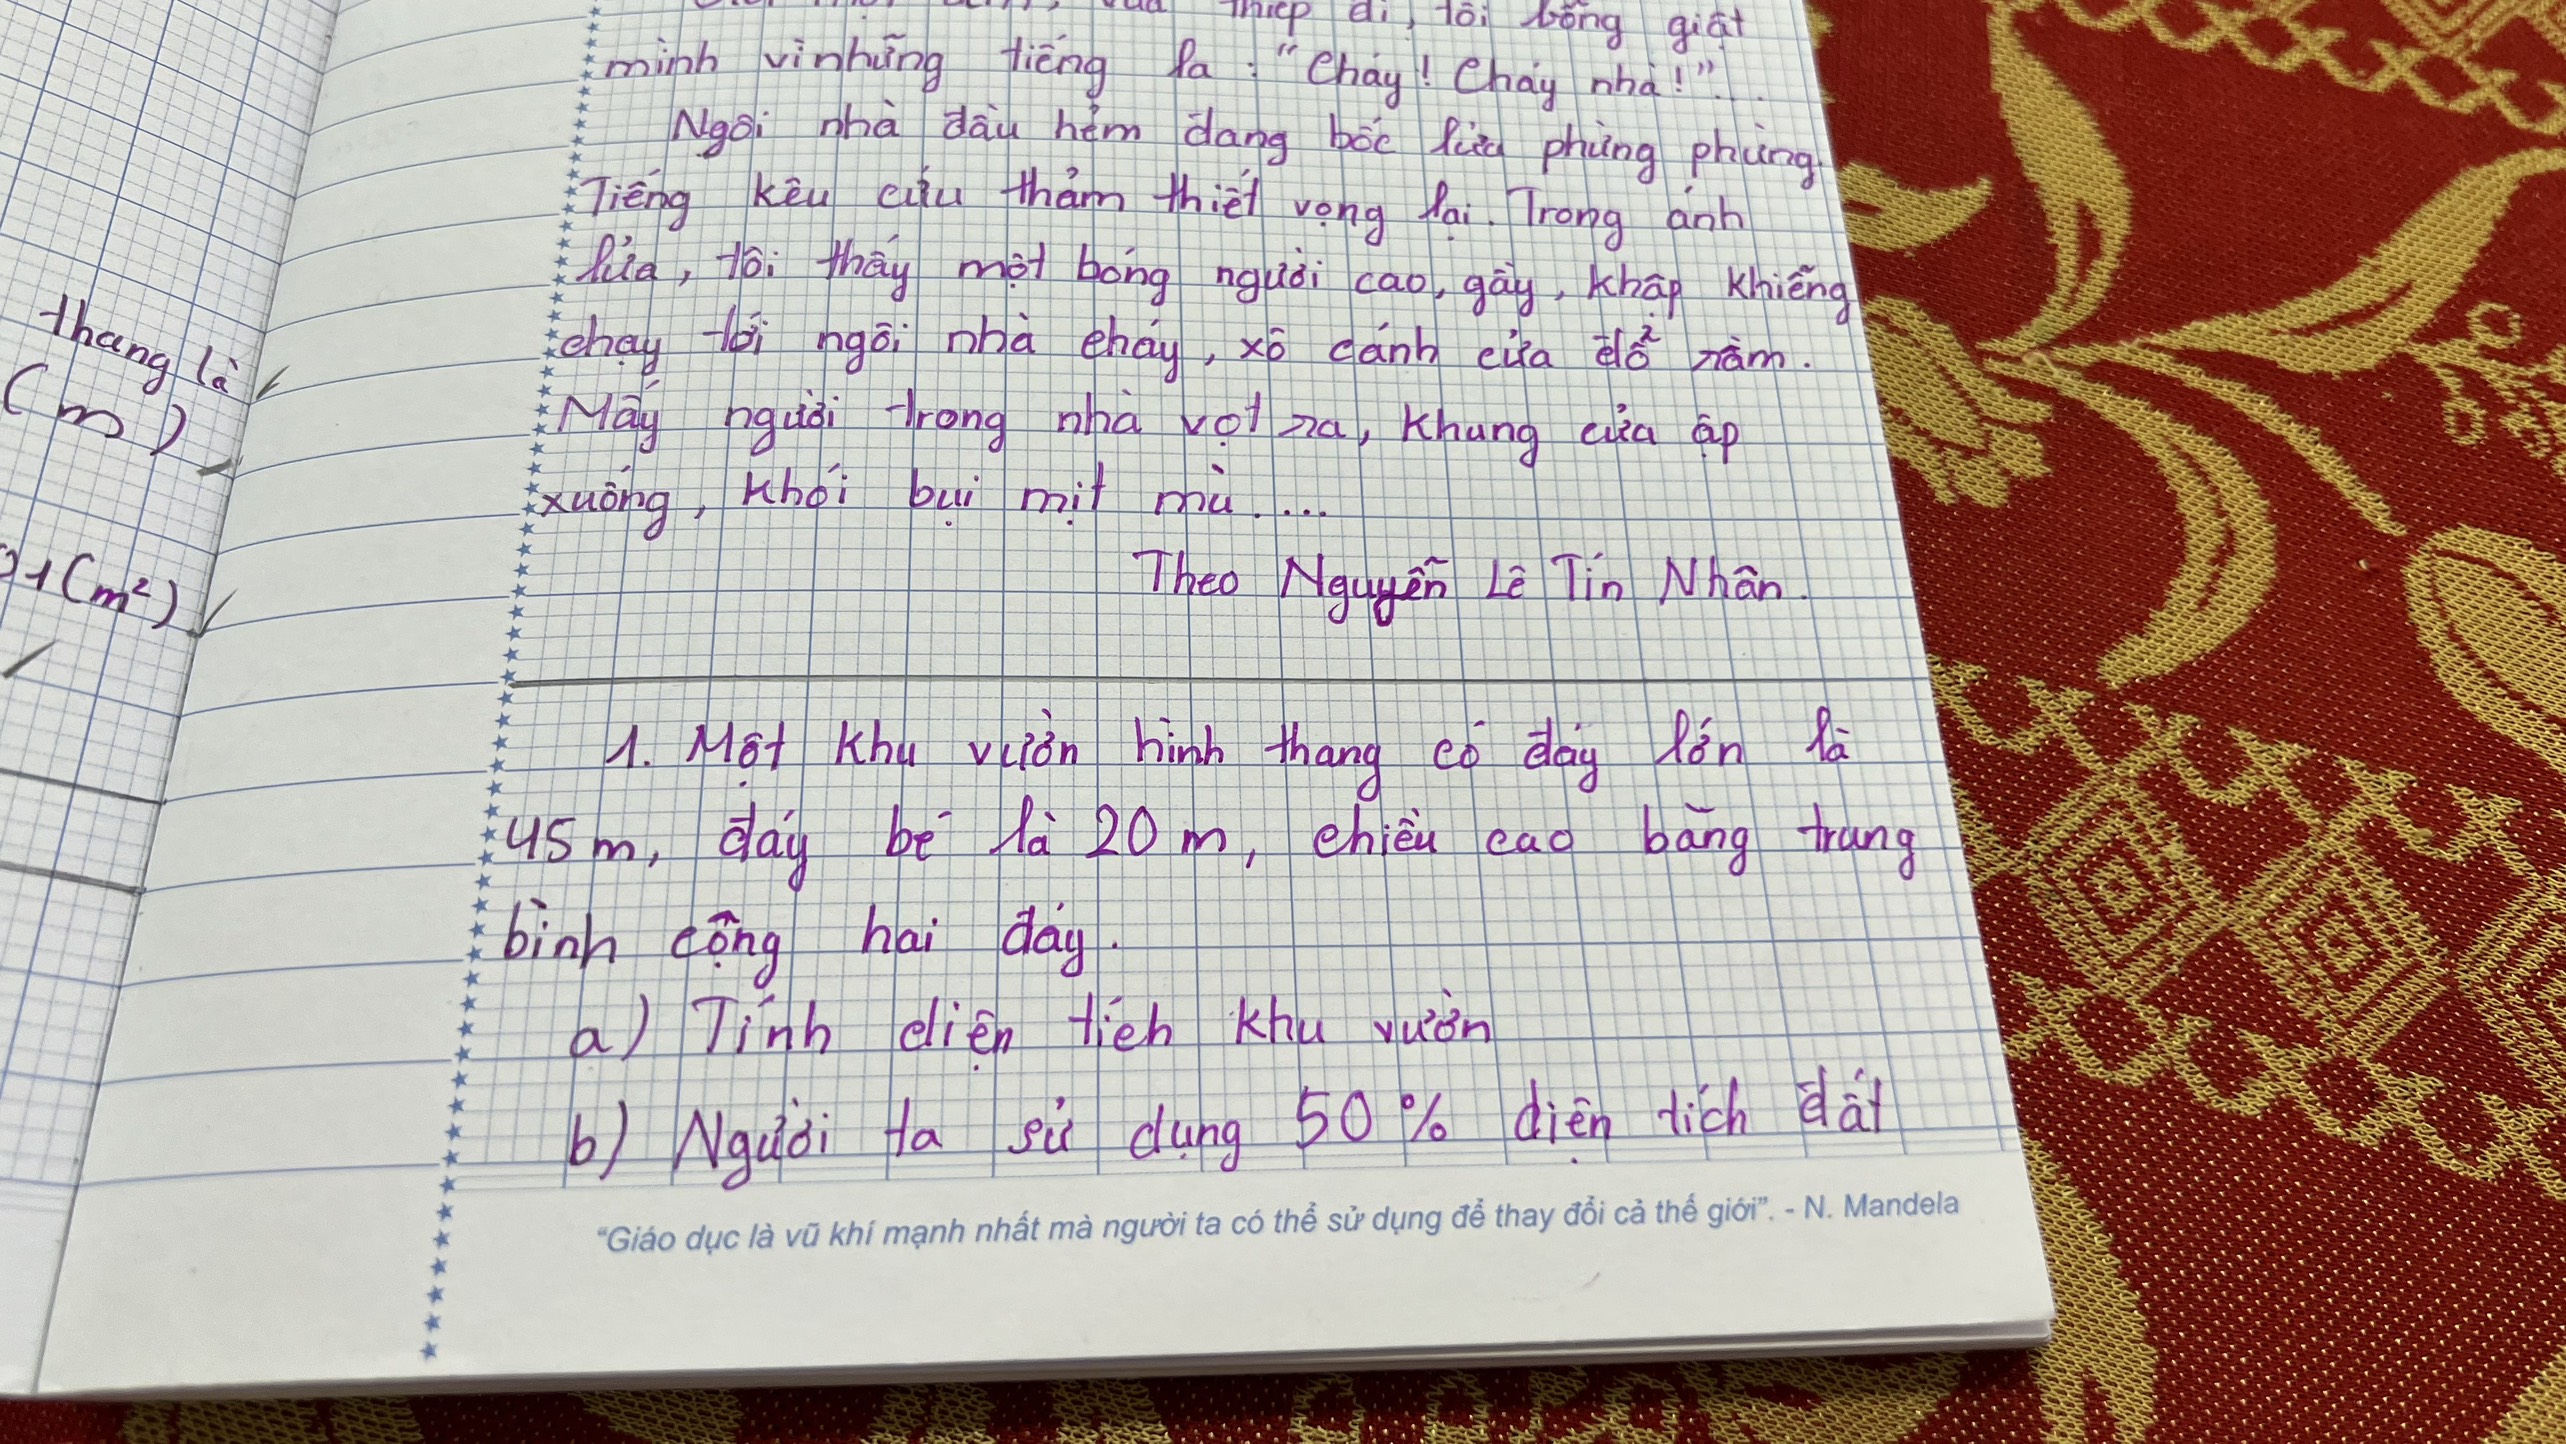 thiếp đi, tôi bỗng giật
mình vì những tiếng la : "Cháy! Cháy nhà!"...
Ngôi nhà đầu hẻm đang bốc lửa phừng phừng.
Tiếng kêu cứu thảm thiết vọng lại. Trong ánh
lửa, tôi thấy một bóng người cao, gầy, khập khiễng
chạy tới ngôi nhà cháy, xô cánh cửa đổ rầm.
Mấy người trong nhà vọt ra, khung cửa ập
xuống, khói bụi mịt mù....
Theo Nguyễn Lê Tín Nhân.
thang là
(m)
1(m²)
1. Một khu vườn hình thang có đáy lớn là
45m, đáy bé là 20m, chiều cao bằng trung
bình cộng hai đáy.
a) Tính diện tích khu vườn
b) Người ta sử dụng 50% diện tích đất
"Giáo dục là vũ khí mạnh nhất mà người ta có thể sử dụng để thay đổi cả thế giới". - N. Mandela